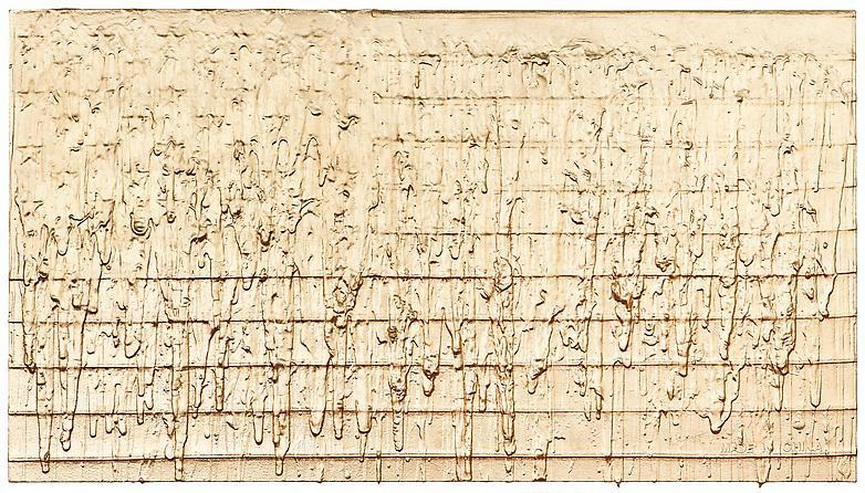 MADE IN CHINA